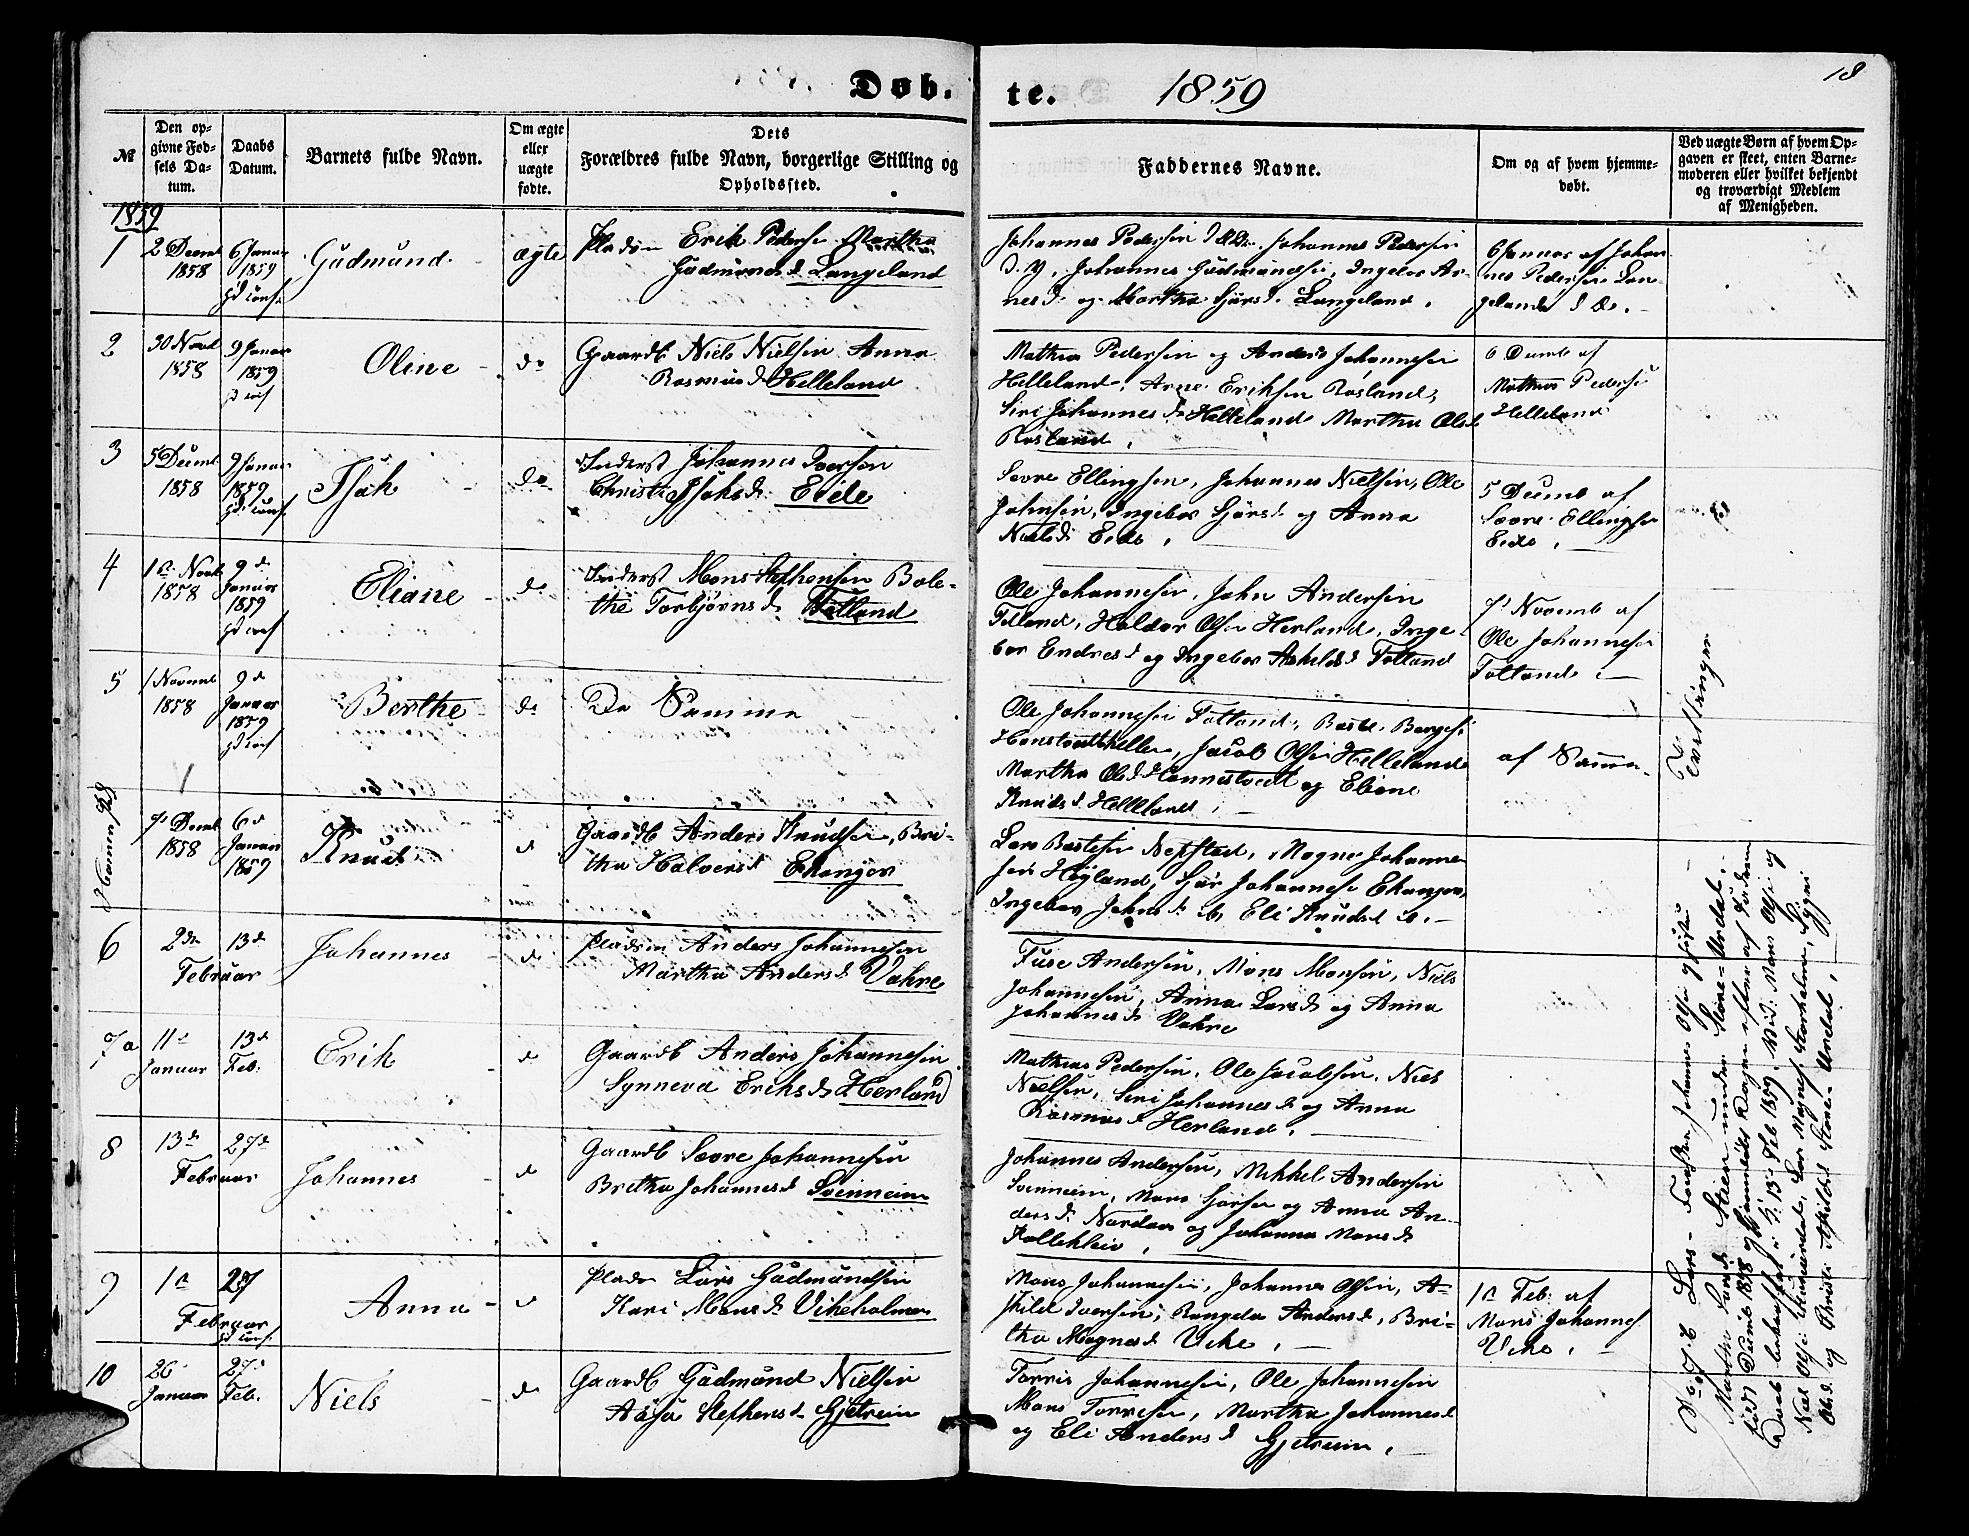 Døb. te. 1859
18
№
Den op-
givne Fød-
sels Da-
tum.
Daabs
Datum.
Barnets fulde Navn.
Om ægte
eller
uægte
fødte.
Dets
Forældres fulde Navn, borgerlige Stilling og
Opholdssted.
Faddernes Navne.
Om og af hvem hjemme-
døbt.
Ved uægte Børn af hvem Op-
gaven er skeet, enten Barne-
moderen eller hvilket bekjendt
og troværdigt Medlem
af Menigheden.
1859
1
2 Decemb
1858
6 Januar
1859
Gudmund
ægte
Plads Erik Pedersen Martha
Gudmunds d. Langeland
Johannes Pedersen d. Æ. Johannes Pedersen
d. y. Johannes Gudmundsen, Ingebor Ar-
nes d. og Martha Sjurs d. Langeland.
6 Januar af Johan-
nes Pedersen Lan-
geland d. Æ.
2
30 Novb
1858
9 Januar
1859
Oline
do
Gaardb Niels Nielsen Anna
Rasmus d. Helleland
Mathias Pedersen og Anders Johannesen
Helleland, Arne Eriksen Røsland,
Siri Johannes d. Helleland Martha Ols d.
Røsland.
6 Decemb af
Mathias Pedersen
Helleland
3
5 Decemb
1858
9 Januar
1859
Isak
do
Inderst Johannes Iversen
Christi Isaks d. Eide
Sevre Ellingsen, Johannes Nielsen, Ole
Johnsen, Ingebor Sjurs d. og Anna
Niels d. Eide.
5 Decemb af
Sevre Ellingsen
Eide.
4
1 Novb
1858
9 d
Januar
1859
Eliane
do
Inderst Mons Stephensen Bole-
the Torbjørns d. Fotland
Ole Johannesen, John Andersen
Fotland, Haldor Olsen Herland, Inge-
bor Endres d. og Ingebor Askilds d. Fotland
7 Novemb af
Ole Johannesen
Fotland.
5
1 Novemb
1858
9 d
Januar
1859
Berthe
do
De Samme
Ole Johannesen Fotland, Baste Børgesen
Jacob Olsen Helleland
Martha Ols d. Hannestvedt og Eliane
Knuds d. Helleland.
af Samme
Tvillinger
Hammer
7 Decemb
1858
6 d
Januar
1859
Knud
d
Gaardb Anders Knudsen, Bri-
tha Halvers d. Ekanger
Lars Bastesen Nepstad, Magne Johanne-
sen Høyland, Sjur Johannesen Ekanger,
Ingebor Johns d. & Eli Knuds d. &.
6
2 d
Februar
13 d
Johannes
d
Pladsm Anders Johannesen
Martha Anders d. Vahre
Fuse Andersen, Mons Monsen, Niels
Johannesen, Anna Lars d. og Anna
Johannes d. Vahre
7 a
11 d
Januar
13 d
Feb.
Erik
d
Gaardb Anders Johannesen
Synneva Eriks d. Herland
Mathias Pedersen, Ole Jacobsen, Niels
Nielsen, Siri Johannes d. og Anna
Rasmus d. Herland.
8
13 d
Februar
27 d
Johannes
d
Gaardb Sevre Johannesen
Bretha Johannes d. Svenneim
Johannes Andersen, Mikkel Andersen
Svenneim, Mons Sjursen og Anna An-
ders d. Nordaas og Johanna Mons d.
Kallekleiv.
9
1
27
Februar
Anna
d
Plads Lars Gudmundsen
Kari Mons d. Vikeholmen
Mons Johannesen, Johannes Olsen, A-
skild Iversen, Rangela Anders d., Bri-
tha Magnes d. Vike.
Feb. af
Mons Johannes.
Vike.
10
26
Januar
27 d
Feb.
Niels
d
Gaardb Gudmund Nielsen
Aasa Stephens d. Gjetreim
Torris Johannesen, Ole Johannesen
Mons Torresen, Martha Johannes d.
og Eli Anders d. Gjetreim.
No 7 b Lars – Johannes Olsen og
Martha Steen under Stene-Undal,
født Decemb 1858 og hjemmedøbt
Daab 13 Feb 1859. Mons Olsen og
Niels Olsen
Ols d. og Christi Askilds d. Stene Undal.